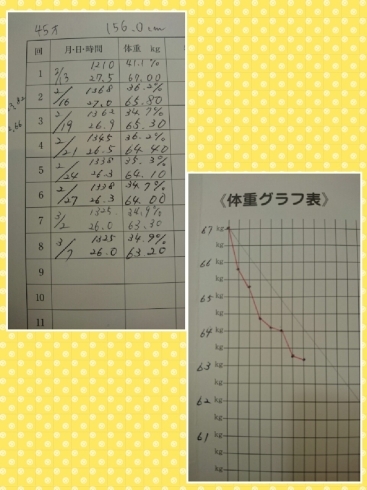 45才 156.0cm
回 月・日・時間 体重 kg
1 2/13 1210 41.1%
27.5 67.00
2 2/16 1368 36.2%
27.0 65.80
3 2/19 1362 34.7%
26.9 65.30
4 2/21 1345 36.2%
26.5 64.40
5 2/24 1338 35.3%
26.3 64.10
6 2/27 1338 34.7%
26.3 64.00
7 3/2 1325
26.0 63.30
8 3/7 1325 34.9%
26.0 63.20
9
10
11
《体重グラフ表》
67 kg
kg
66 kg
kg
65 kg
kg
64 kg
kg
63 kg
kg
62 kg
kg
61 kg
kg